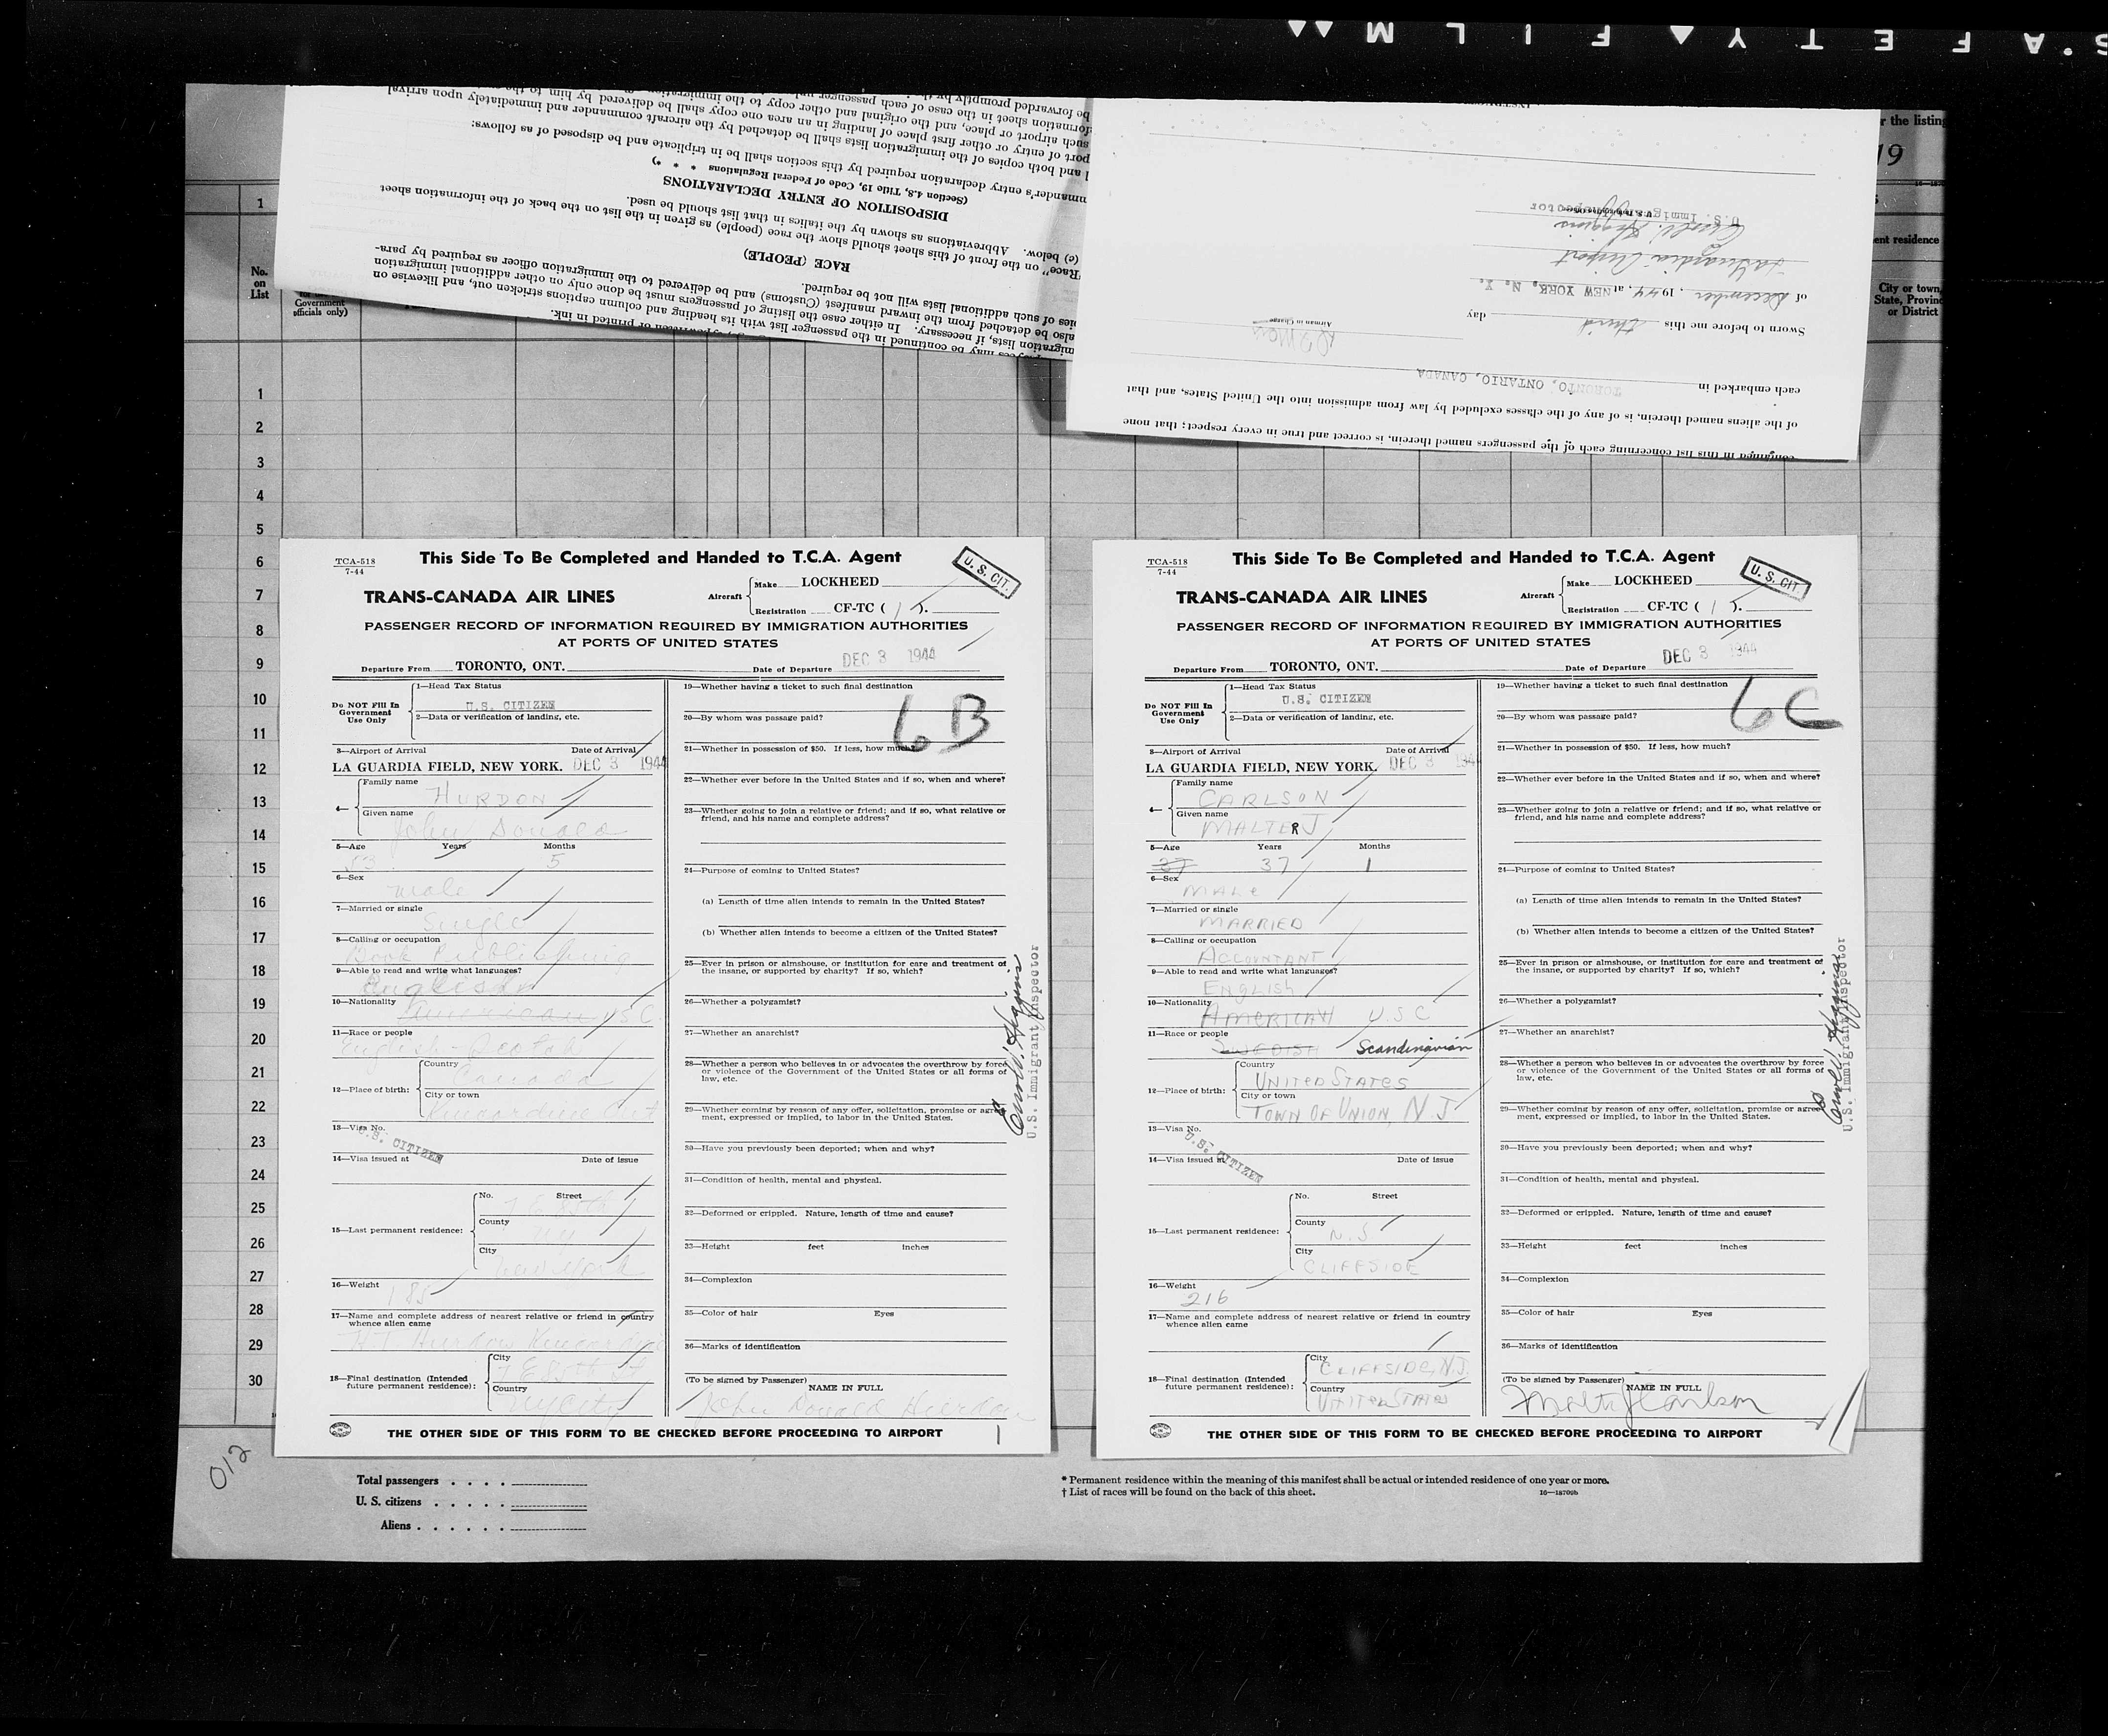 S·A F E T Y ▲ F I L M ▲▲
be forwarded promptly by the
formation sheet in the case of each passenger
such airport or place, and the original and other copy to the immigration
port of entry or other first place of landing in an area one copy shall be delivered by him to the
and both copies of the immigration lists shall be detached by the aircraft commander and immediately upon arrival
mander's entry declaration required by this section shall be in triplicate and be disposed of as follows:
(Section 4.8, Title 19, Code of Federal Regulations * * *)
DISPOSITION OF ENTRY DECLARATIONS
(e) below. Abbreviations as shown by the italics in that list should be used.
"Race" on the front of this sheet should show the race (people) as given in the list on the back of the information sheet
RACE (PEOPLE)
ies of such additional lists will not be required.
also be detached from the inward manifest (Customs) and be delivered to the immigration officer as required by para-
migration lists, if necessary. In either case the listing of passengers must be done only on other additional immigration
may be continued in the passenger list with its heading and column captions stricken out, and likewise on
or printed in ink.
contained in this list concerning each of the passengers named therein, is correct and true in every respect; that none
of the aliens named therein, is of any of the classes excluded by law from admission into the United States, and that
each embarked in TORONTO, ONTARIO, CANADA
Airman in Charge
Sworn to before me this third day
of December, 1944, at NEW YORK, N. Y.
LaGuardia Airport
U.S. Immigrant Inspector
r the listing
19
ent residence
City or town,
State, Province
or District
1
No.
on
List
Government
officials only)
1
2
3
4
5
6
7
8
9
10
11
12
13
14
15
16
17
18
19
20
21
22
23
24
25
26
27
28
29
30
TCA-518
7-44
This Side To Be Completed and Handed to T.C.A. Agent
U. S. CIT.
TRANS-CANADA AIR LINES
Aircraft
Make LOCKHEED
Registration CF-TC ( 1 ).
PASSENGER RECORD OF INFORMATION REQUIRED BY IMMIGRATION AUTHORITIES
AT PORTS OF UNITED STATES
Departure From TORONTO, ONT. Date of Departure DEC 3 1944
Do NOT Fill In
Government
Use Only
1—Head Tax Status
U.S. CITIZEN
2—Data or verification of landing, etc.
3—Airport of Arrival Date of Arrival
LA GUARDIA FIELD, NEW YORK. DEC 3 1944
4—
Family name
HURDON
Given name
John Donald
5—Age Years Months
53 5
6—Sex
male
7—Married or single
Single
8—Calling or occupation
Book Publishing
9—Able to read and write what languages?
English
10—Nationality
American USC
11—Race or people
English - Scotch
12—Place of birth:
Country
Canada
City or town
Kincardine Ont
13—Visa No.
U.S. CITIZEN
14—Visa issued at Date of issue
15—Last permanent residence:
No. Street
7 E 85th
County
N.Y.
City
New York
16—Weight
185
17—Name and complete address of nearest relative or friend in country
whence alien came
Hurdon Kincardine
18—Final destination (Intended
future permanent residence):
City
7 E 85th St
Country
NYCity
19—Whether having a ticket to such final destination
6B
20—By whom was passage paid?
21—Whether in possession of $50. If less, how much?
22—Whether ever before in the United States and if so, when and where?
23—Whether going to join a relative or friend; and if so, what relative or
friend, and his name and complete address?
24—Purpose of coming to United States?
(a) Length of time alien intends to remain in the United States?
(b) Whether alien intends to become a citizen of the United States?
25—Ever in prison or almshouse, or institution for care and treatment of
the insane, or supported by charity? If so, which?
26—Whether a polygamist?
27—Whether an anarchist?
28—Whether a person who believes in or advocates the overthrow by force
or violence of the Government of the United States or all forms of
law, etc.
29—Whether coming by reason of any offer, solicitation, promise or agree-
ment, expressed or implied, to labor in the United States.
30—Have you previously been deported; when and why?
31—Condition of health, mental and physical.
32—Deformed or crippled. Nature, length of time and cause?
33—Height feet inches
34—Complexion
35—Color of hair Eyes
36—Marks of identification
(To be signed by Passenger)
NAME IN FULL
John Donald Hurdon
U.S. Immigrant Inspector
THE OTHER SIDE OF THIS FORM TO BE CHECKED BEFORE PROCEEDING TO AIRPORT
1
TCA-518
7-44
This Side To Be Completed and Handed to T.C.A. Agent
U. S. CIT.
TRANS-CANADA AIR LINES
Aircraft
Make LOCKHEED
Registration CF-TC ( 1 ).
PASSENGER RECORD OF INFORMATION REQUIRED BY IMMIGRATION AUTHORITIES
AT PORTS OF UNITED STATES
Departure From TORONTO, ONT. Date of Departure DEC 3 1944
Do NOT Fill In
Government
Use Only
1—Head Tax Status
U.S. CITIZEN
2—Data or verification of landing, etc.
3—Airport of Arrival Date of Arrival
LA GUARDIA FIELD, NEW YORK. DEC 3 194
4—
Family name
CARLSON
Given name
MALTER J
5—Age Years Months
37 37 1
6—Sex
MALE
7—Married or single
MARRIED
8—Calling or occupation
ACCOUNTANT
9—Able to read and write what languages?
ENGLISH
10—Nationality
AMERICAN U.S.C
11—Race or people
SWEDISH Scandinavian
12—Place of birth:
Country
UNITED STATES
City or town
TOWN OF UNION, N.J
13—Visa No.
U.S. CITIZEN
14—Visa issued at Date of issue
15—Last permanent residence:
No. Street
County
N.J
City
CLIFFSIDE
16—Weight
216
17—Name and complete address of nearest relative or friend in country
whence alien came
18—Final destination (Intended
future permanent residence):
City
CLIFFSIDE, N.J.
Country
UNITED STATES
19—Whether having a ticket to such final destination
6C
20—By whom was passage paid?
21—Whether in possession of $50. If less, how much?
22—Whether ever before in the United States and if so, when and where?
23—Whether going to join a relative or friend; and if so, what relative or
friend, and his name and complete address?
24—Purpose of coming to United States?
(a) Length of time alien intends to remain in the United States?
(b) Whether alien intends to become a citizen of the United States?
25—Ever in prison or almshouse, or institution for care and treatment of
the insane, or supported by charity? If so, which?
26—Whether a polygamist?
27—Whether an anarchist?
28—Whether a person who believes in or advocates the overthrow by force
or violence of the Government of the United States or all forms of
law, etc.
29—Whether coming by reason of any offer, solicitation, promise or agree-
ment, expressed or implied, to labor in the United States.
30—Have you previously been deported; when and why?
31—Condition of health, mental and physical.
32—Deformed or crippled. Nature, length of time and cause?
33—Height feet inches
34—Complexion
35—Color of hair Eyes
36—Marks of identification
(To be signed by Passenger)
NAME IN FULL
Malte J Carlson
U.S. Immigrant Inspector
THE OTHER SIDE OF THIS FORM TO BE CHECKED BEFORE PROCEEDING TO AIRPORT
012
Total passengers . . . .
U. S. citizens . . . . .
Aliens . . . . . .
* Permanent residence within the meaning of this manifest shall be actual or intended residence of one year or more.
† List of races will be found on the back of this sheet.
16—18709b